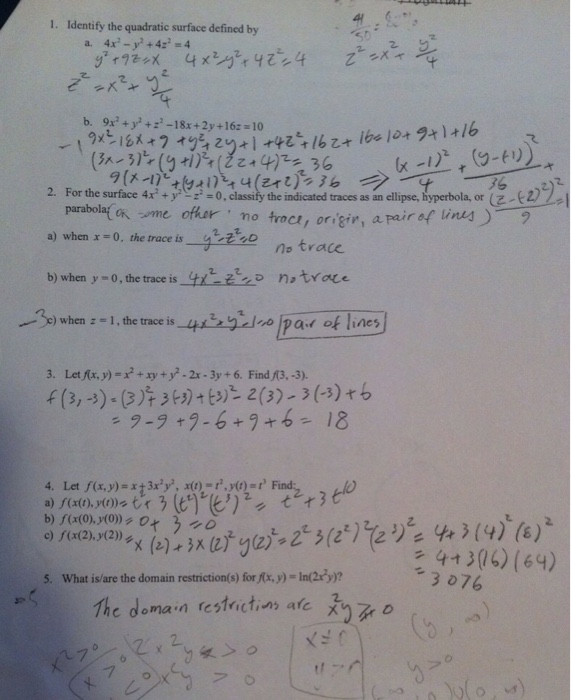 41/50 = 82%
1. Identify the quadratic surface defined by
a. 4x² - y² + 4z² = 4
y² + 9z = x 4x² - y² + 4z² = 4 z² = x² + y²/4
z² = x² + y²/4
b. 9x² + y² + z² - 18x + 2y + 16z = 10
-1 9x² - 18x + 9 + y² + 2y + 1 + 4z² + 16z + 16 = 10 + 9 + 1 + 16
(3x - 3)² + (y + 1)² + (2z + 4)² = 36
9(x - 1)² + (y + 1)² + 4(z + 2)² = 36 ⇒ (x - 1)²/4 + (y - (-1))²/36 + (z - (-2)²)²/9 = 1
2. For the surface 4x² + y² - z² = 0, classify the indicated traces as an ellipse, hyperbola, or
parabola (or some other: no trace, origin, a pair of lines)
a) when x = 0, the trace is y² - z² = 0 no trace
b) when y = 0, the trace is 4x² - z² = 0 no trace
-3 c) when z = 1, the trace is 4x² + y² - 1 = 0 pair of lines
3. Let f(x, y) = x² + xy + y² - 2x - 3y + 6. Find f(3, -3).
f(3, -3) = (3)² + 3(-3) + (-3)² - 2(3) - 3(-3) + 6
= 9 - 9 + 9 - 6 + 9 + 6 = 18
4. Let f(x, y) = x + 3x²y², x(t) = t², y(t) = t³ Find:
a) f(x(t), y(t)) = t² + 3(t²)²(t³)² = t² + 3t¹⁰
b) f(x(0), y(0)) = 0 + 3 = 0
c) f(x(2), y(2)) = x(2) + 3x(2)² y(2)² = 2² 3(2²)²(2³)² = 4 + 3(4)²(8)²
= 4 + 3(16)(64)
= 3076
5. What is/are the domain restriction(s) for f(x, y) = ln(2x²y)?
The domain restrictions are x²y > 0
(y, ∞)
x² > 0 2x²y > 0 x ≠ 0
x > 0 x²y > 0 y > 0